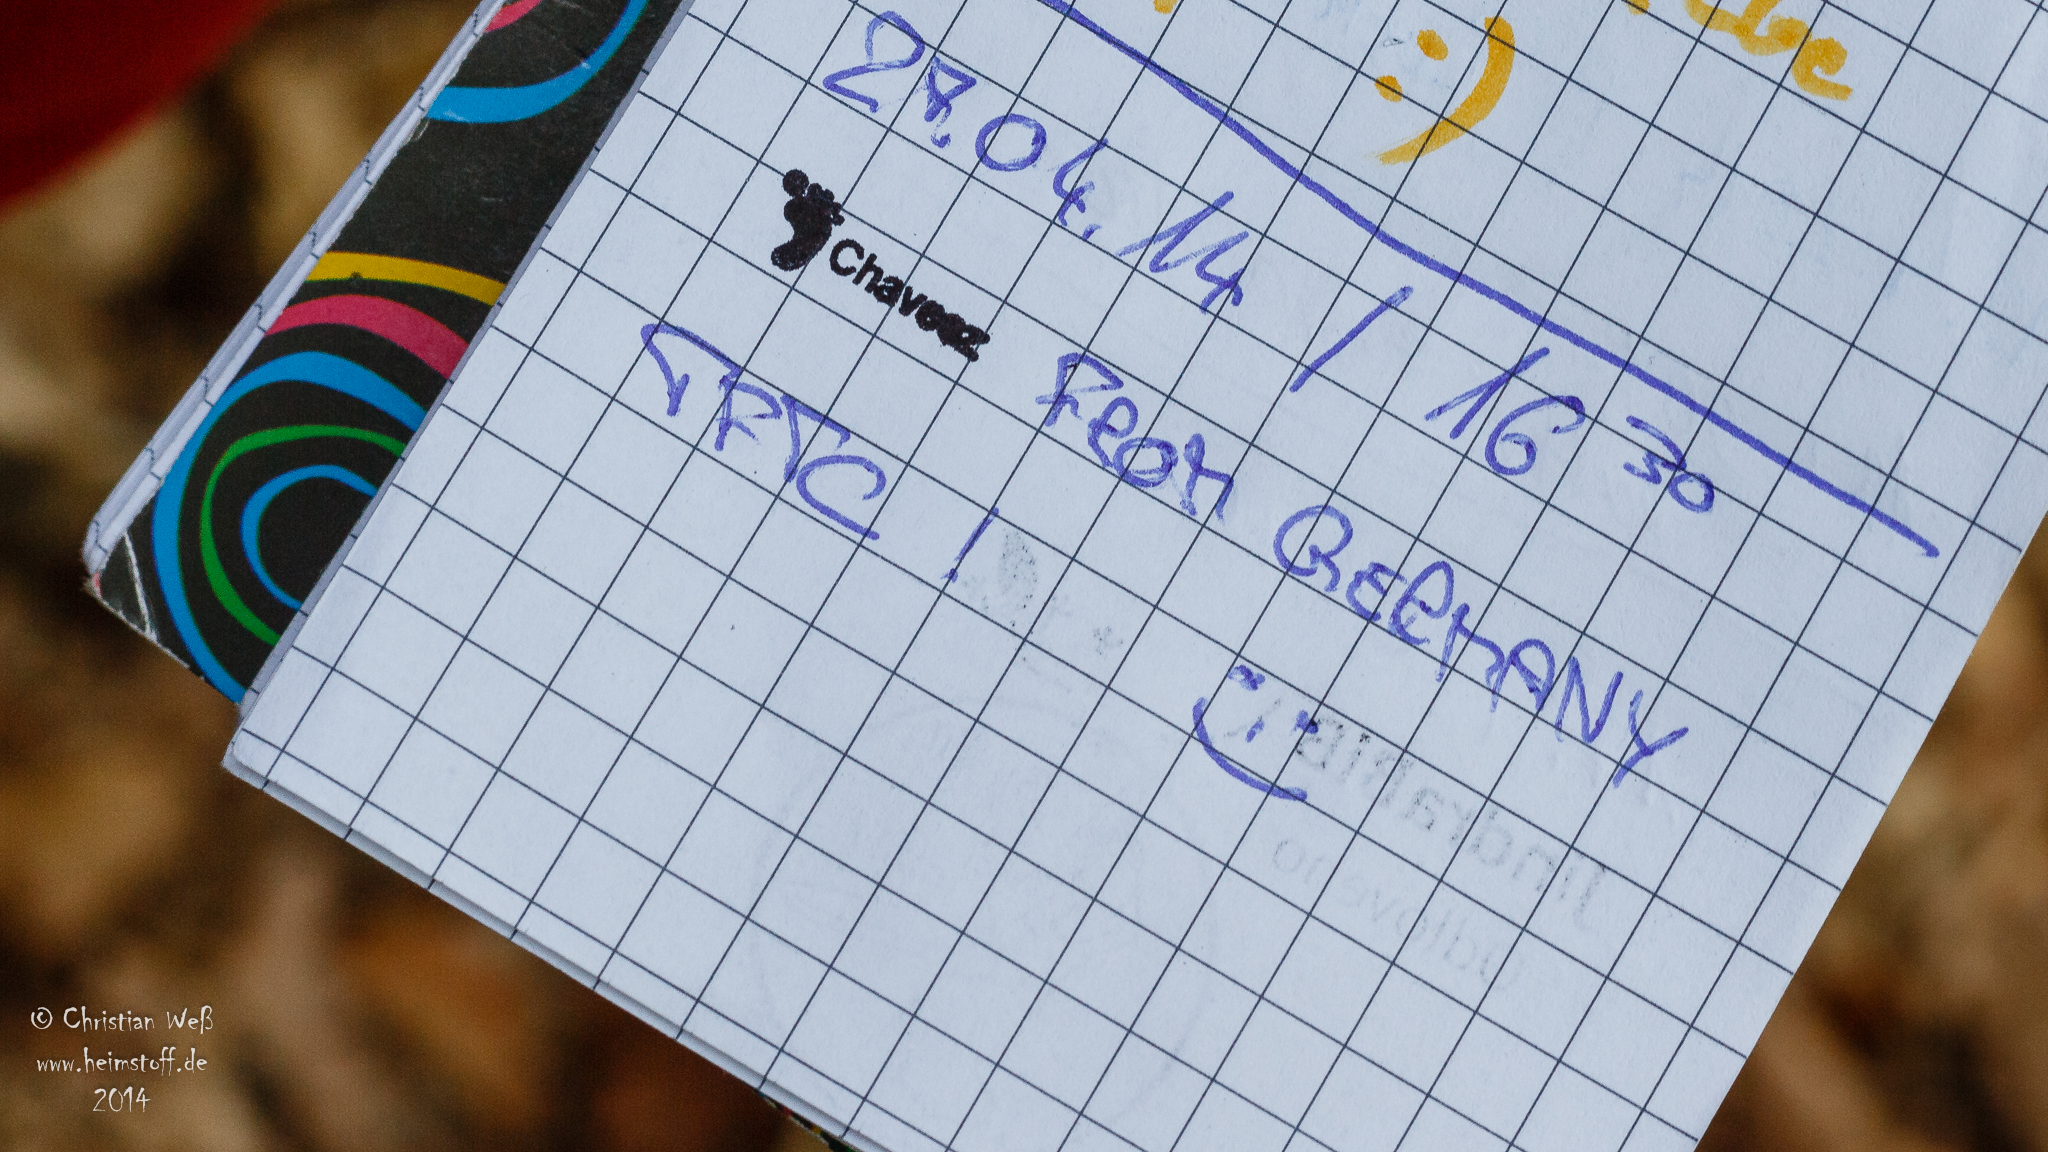 :)
28.04.14 / 16 30
Chaveez FROM GERMANY
TFTC !
© Christian Weß
www.heimstoff.de
2014